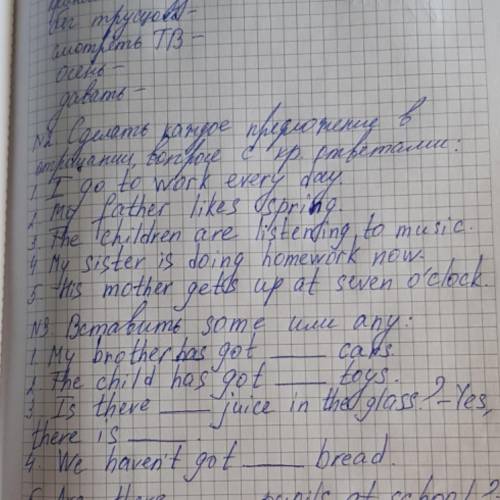 бег трусцой-
смотреть ТВ-
осень-
давать-
№2 Сделать каждое предложение в
отрицании, вопросе с кр. ответами:
1. I go to work every day.
2. My father likes spring.
3. The children are listening to music.
4. My sister is doing homework now.
5. His mother gets up at seven o'clock.
№3 Вставить some или any:
1. My brother has got ___ cars.
2. The child has got ___ toys.
3. Is there ___ juice in the glass? - Yes,
there is ___.
4. We haven't got ___ bread.
pupils at school?